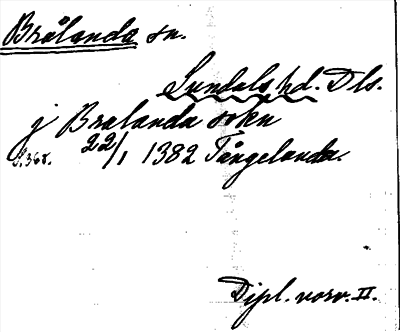 Brålanda sn.
Sundals hd. Dls.
j Bralanda sokn
S. 368. 22/1 1382 Tångelanda.
Dipl. norv. II.